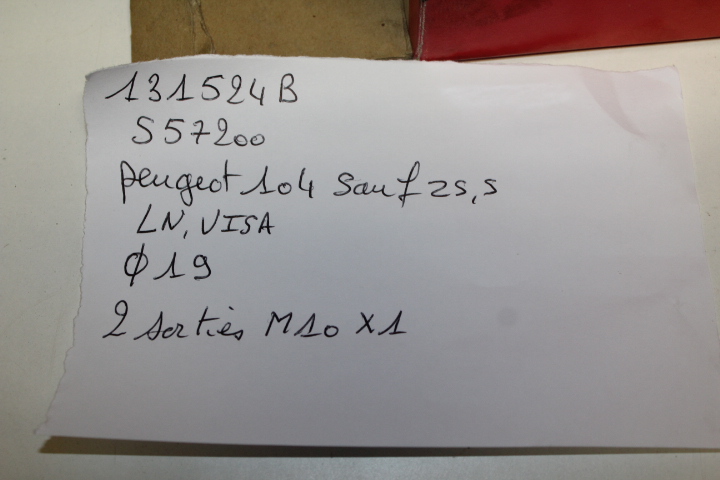 131524B
S57200
peugeot 104 sauf ZS, S
LN, VISA
Ø 19
2 sorties M10 X1